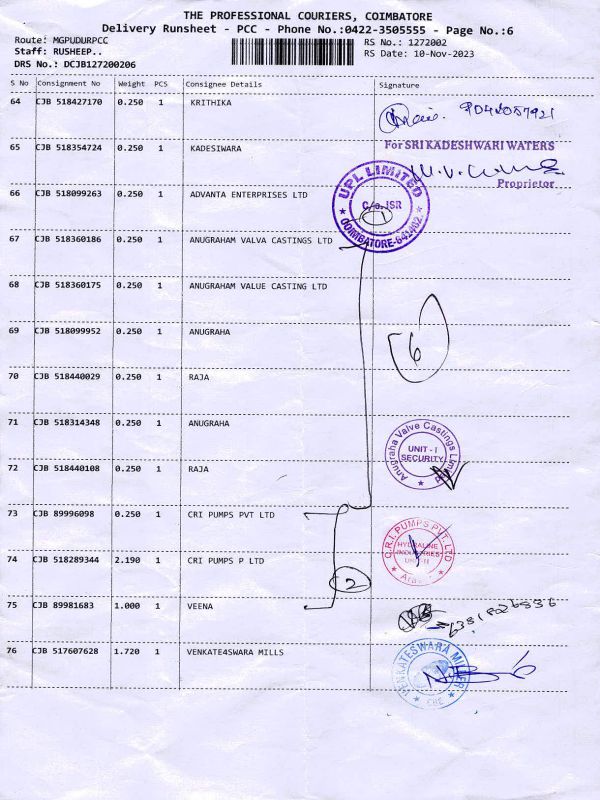 THE PROFESSIONAL COURIERS, COIMBATORE
Delivery Runsheet - PCC - Phone No.:0422-3505555 - Page No.:6
Route: MGPUDURPCC
Staff: RUSHEEP..
DRS No.: DCJB127200206
RS No.: 1272002
RS Date: 10-Nov-2023
S No Consignment No Weight PCS Consignee Details Signature
64 CJB 518427170 0.250 1 KRITHIKA
65 CJB 518354724 0.250 1 KADESIWARA
For SRI KADESHWARI WATERS
Proprietor
66 CJB 518099263 0.250 1 ADVANTA ENTERPRISES LTD
UPL LIMITED
C/o. JSR
COIMBATORE-641402
1
67 CJB 518360186 0.250 1 ANUGRAHAM VALVA CASTINGS LTD
68 CJB 518360175 0.250 1 ANUGRAHAM VALUE CASTING LTD
69 CJB 518099952 0.250 1 ANUGRAHA
6
70 CJB 518440029 0.250 1 RAJA
71 CJB 518314348 0.250 1 ANUGRAHA
Anugraha Valve Castings Limited
UNIT - I
SECURITY
72 CJB 518440108 0.250 1 RAJA
73 CJB 89996098 0.250 1 CRI PUMPS PVT LTD
C.R.I. PUMPS PVT. LTD
HYDRALINE
INDUSTRIES
UNIT-II
74 CJB 518289344 2.190 1 CRI PUMPS P LTD
2
75 CJB 89981683 1.000 1 VEENA
76 CJB 517607628 1.720 1 VENKATE4SWARA MILLS
VENKATESWARA MILLS
CBE